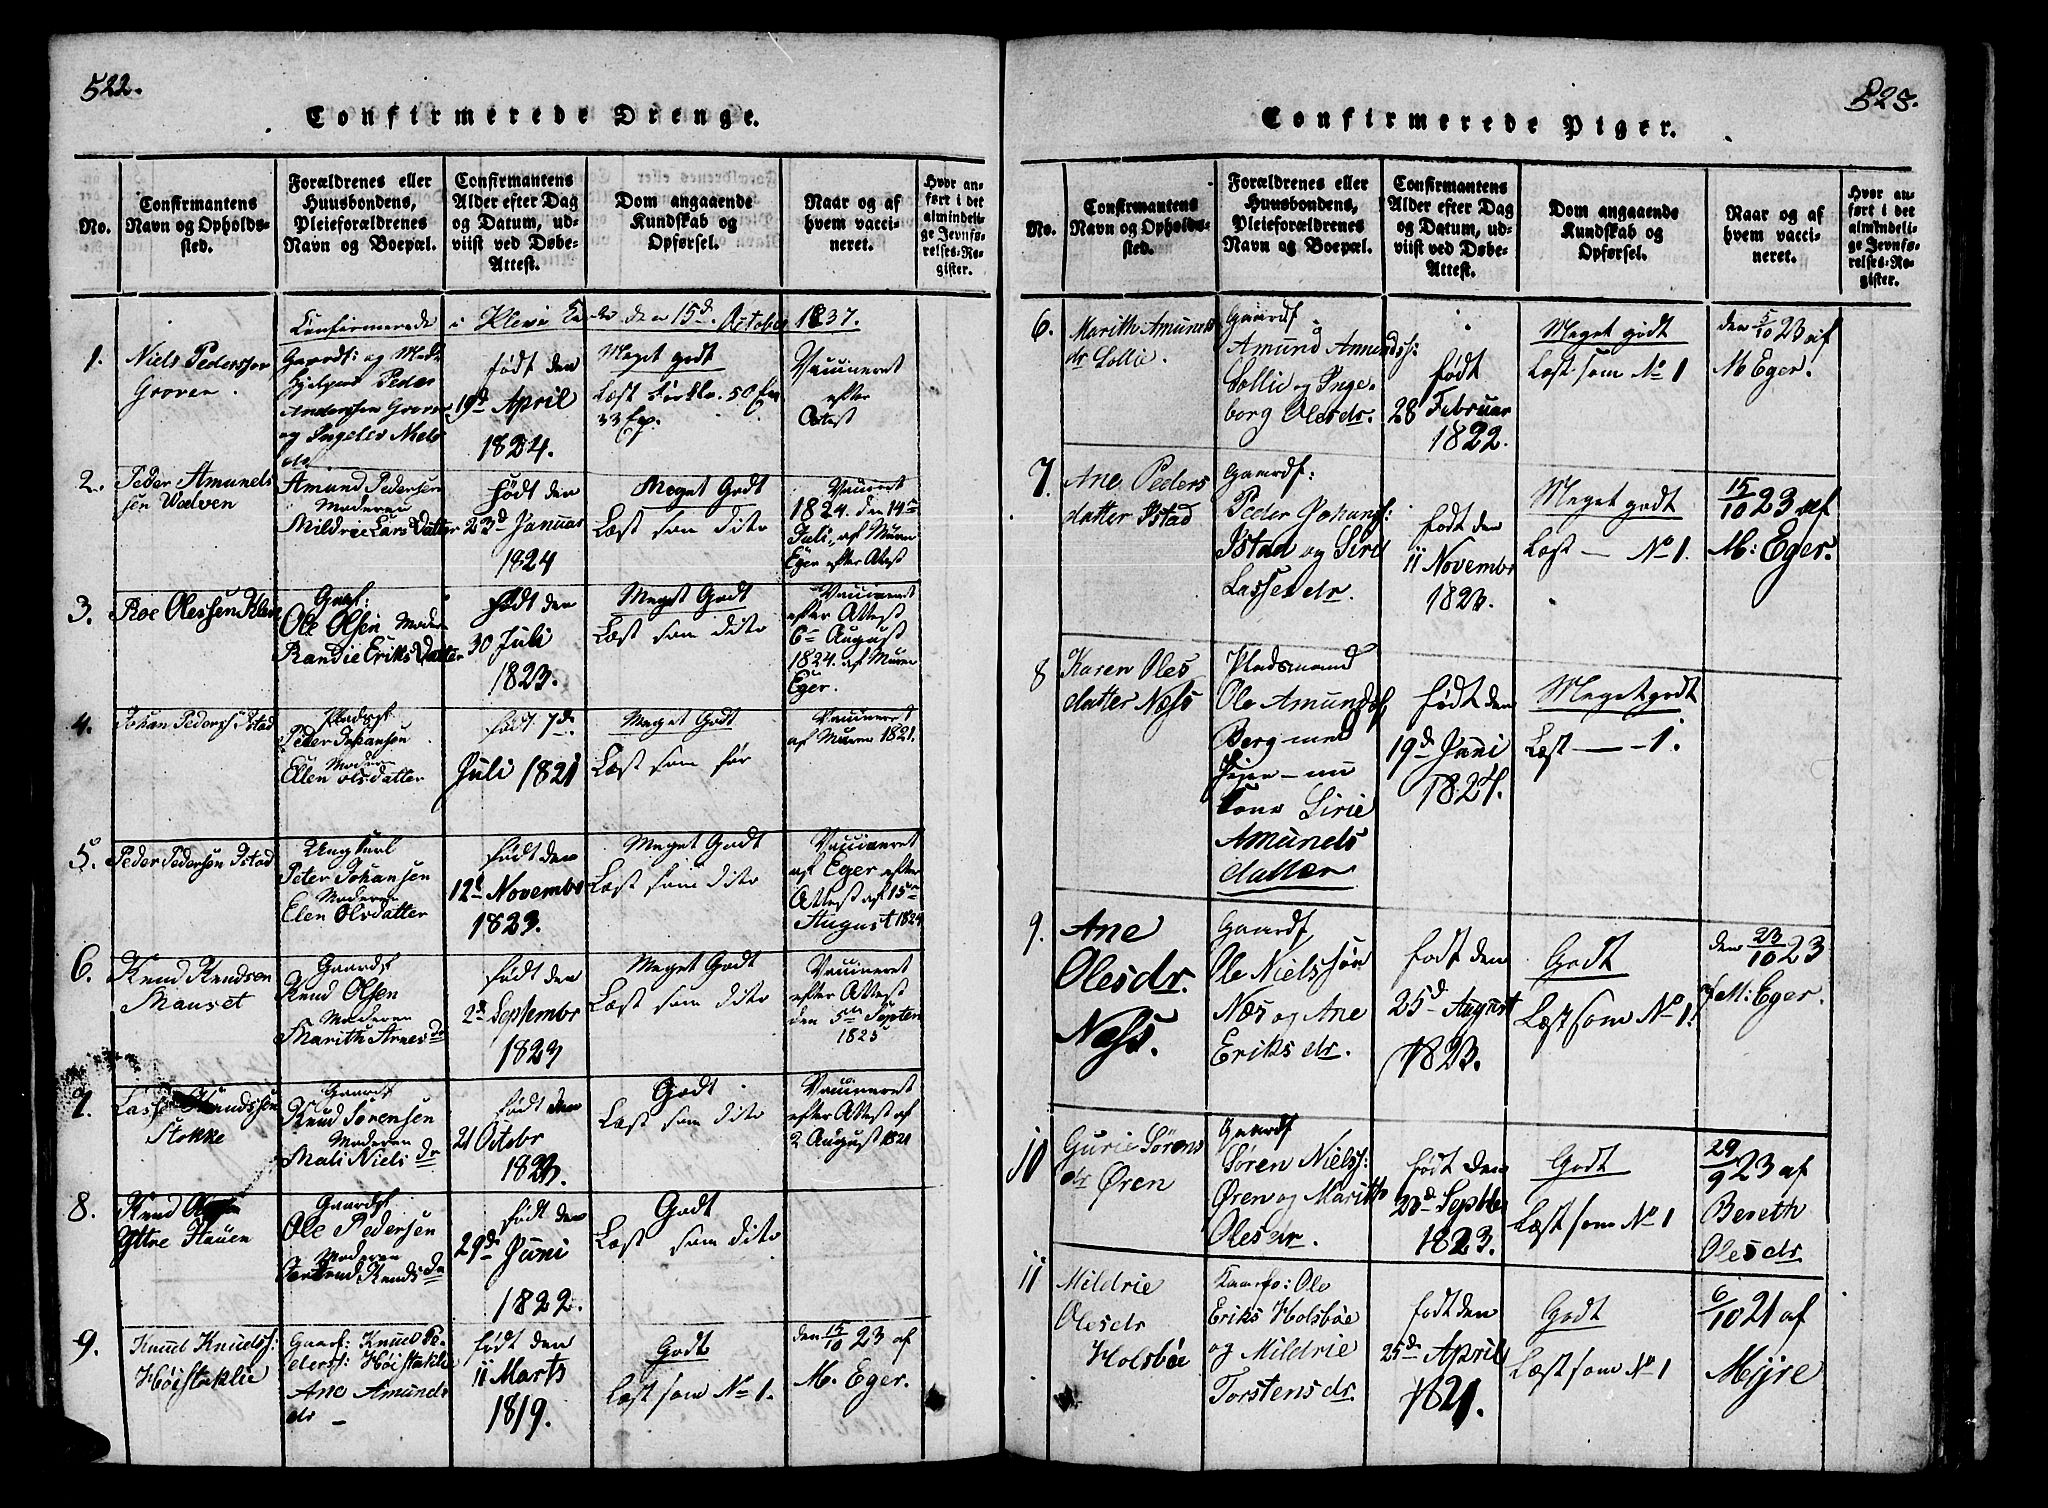 522.
Confirmerede Drenge.
No.
Confirmantens
Navn og Opholds-
sted.
Forældrenes eller
Huusbondens,
Pleieforældrenes
Navn og Boepæl.
Confirmantens
Alder efter Dag
og Datum, ud-
viist ved Døbe-
Attest.
Dom angaaende
Kundskab og
Opførsel.
Naar og af
hvem vacci-
neret.
Hvor an-
ført i det
almindeli-
ge Jevnfø-
relses-Re-
gister.
Confirmerede i Klevi den 15d. October 1837.
1.
Niels Pederssen
Groven
Gaardf: og Med-
hjelper Peder
Anderssen Groven
og Ingeler Niels
dr
født den
19d April
1824.
Meget godt
Læst Forklr. 50
33
Vaccineret
efter
Attest
2.
Peder Amunds
sen Wadven
Amund Pedersen
Moderen
Mildrie Lars Datter
født den
23d Januar
1824
Meget Godt
Læst som dito
1824. den 14de
Juli, af
Eger efter Attest
3.
Roe Olessen Kleve
Ole Olsen Moderen
Randie Eriks Datter
født den
30 Juli
1823.
Meget Godt
Læst som dito
Vaccineret
efter Attest
6te August
1824. af
Eger.
4.
Johan Pederss Istad
Pladsf
Peder Johansen
Moderen
Ellen Olsdatter
født 7de
Juli 1821
Meget Godt
Læst som før
Vaccineret
af 1821.
5.
Peder Pedersen Istad
Ungkarl
Peter Johansen
Moderen
Elen Olsdatter
født den
12d Novembr
1823.
Meget Godt
Læst som dito
Vaccineret
af Eger efter
Attest af 15de
August 1824
6.
Knud Knudsen
Mauset
Gaardf
Knud Olsen
Moderen
Marith Arnes dr
født den
2d Septembr
1823
Meget Godt
Læst som dito
Vaccineret
efter Attest
den 5te Septem
1825
7.
Lasse Knudssøn
Stokke
Gaardf
Knud Sørensen
Moderen
Mali Niels dr
født den
21 Octobr
1823.
Godt
Læst som dito
Vaccineret
efter Attest af
2 August 1821
8.
Knud
Yttre Hauen
Gaardf
Ole Pedersen
Moderen
Knuds dr
født den
29de Juni
1822.
Godt
Læst som dito
9.
Knud Knuds:
Høistaklie
Gaarf: Knud Pe-
ders: Høistaklie
Ane Amunds
dr
født den
11 Marts
1819.
Godt
Læst som No 1.
den 15/10 23 af
M. Eger.
523.
Confirmerede Piger.
No.
Confirmantens
Navn og Opholds-
sted.
Forældrenes eller
Huusbondens,
Pleieforældrenes
Navn og Boepæl.
Confirmantens
Alder efter Dag
og Datum, ud-
viist ved Døbe-
Attest.
Dom angaaende
Kundskab og
Opførsel.
Naar og af
hvem vacci-
neret.
Hvor an-
ført i det
almindeli-
ge Jevnfø-
relses-Re-
gister.
6.
Marith Amunds
dr Sollie.
Gaardf
Amund Amunds:
Sollie og Inge-
borg Olesdr.
født
28 Februar
1822.
Meget godt
Læst som No 1
den 5/10 23 af
M Eger.
7.
Ane Peders
datter Istad
Gaardf:
Peder Johans:
Istad og Siri
Lasses dr.
født den
11 Novembr
1823.
Meget godt
Læst — No 1.
15/10 23 af
M: Eger.
8
Karen Oles
datter Næss
Pladsmand
Ole Amundss
Berg med
Pigen — nu
Kone Sirie
Amunds
datter
født den
19d Juni
1824.
Meget godt
Læst — — 1.
9.
Ane
Olesdr.
Næss.
Gaardf
Ole Nielssøn
Næs og Ane
Eriks dr.
født den
25d August
1823.
Godt
Læst som No 1.
den 23/10 23
af M: Eger.
10
Gurie Sørens
dr Øren
Gaardf
Søren Nielss:
Øren og Marith
Oles dr.
født den
20d Septbr
1823.
Godt
Læst som No 1
29/9 23 af
Bereth
Olesdr
11
Mildrie
Olesdr
Holsbøe
Gaardf: Ole
Eriks Holsbøe
og Mildrie
Torstensdr.
født den
25de April
1821.
Godt
Læst som No 1
6/10 21 af
Myre